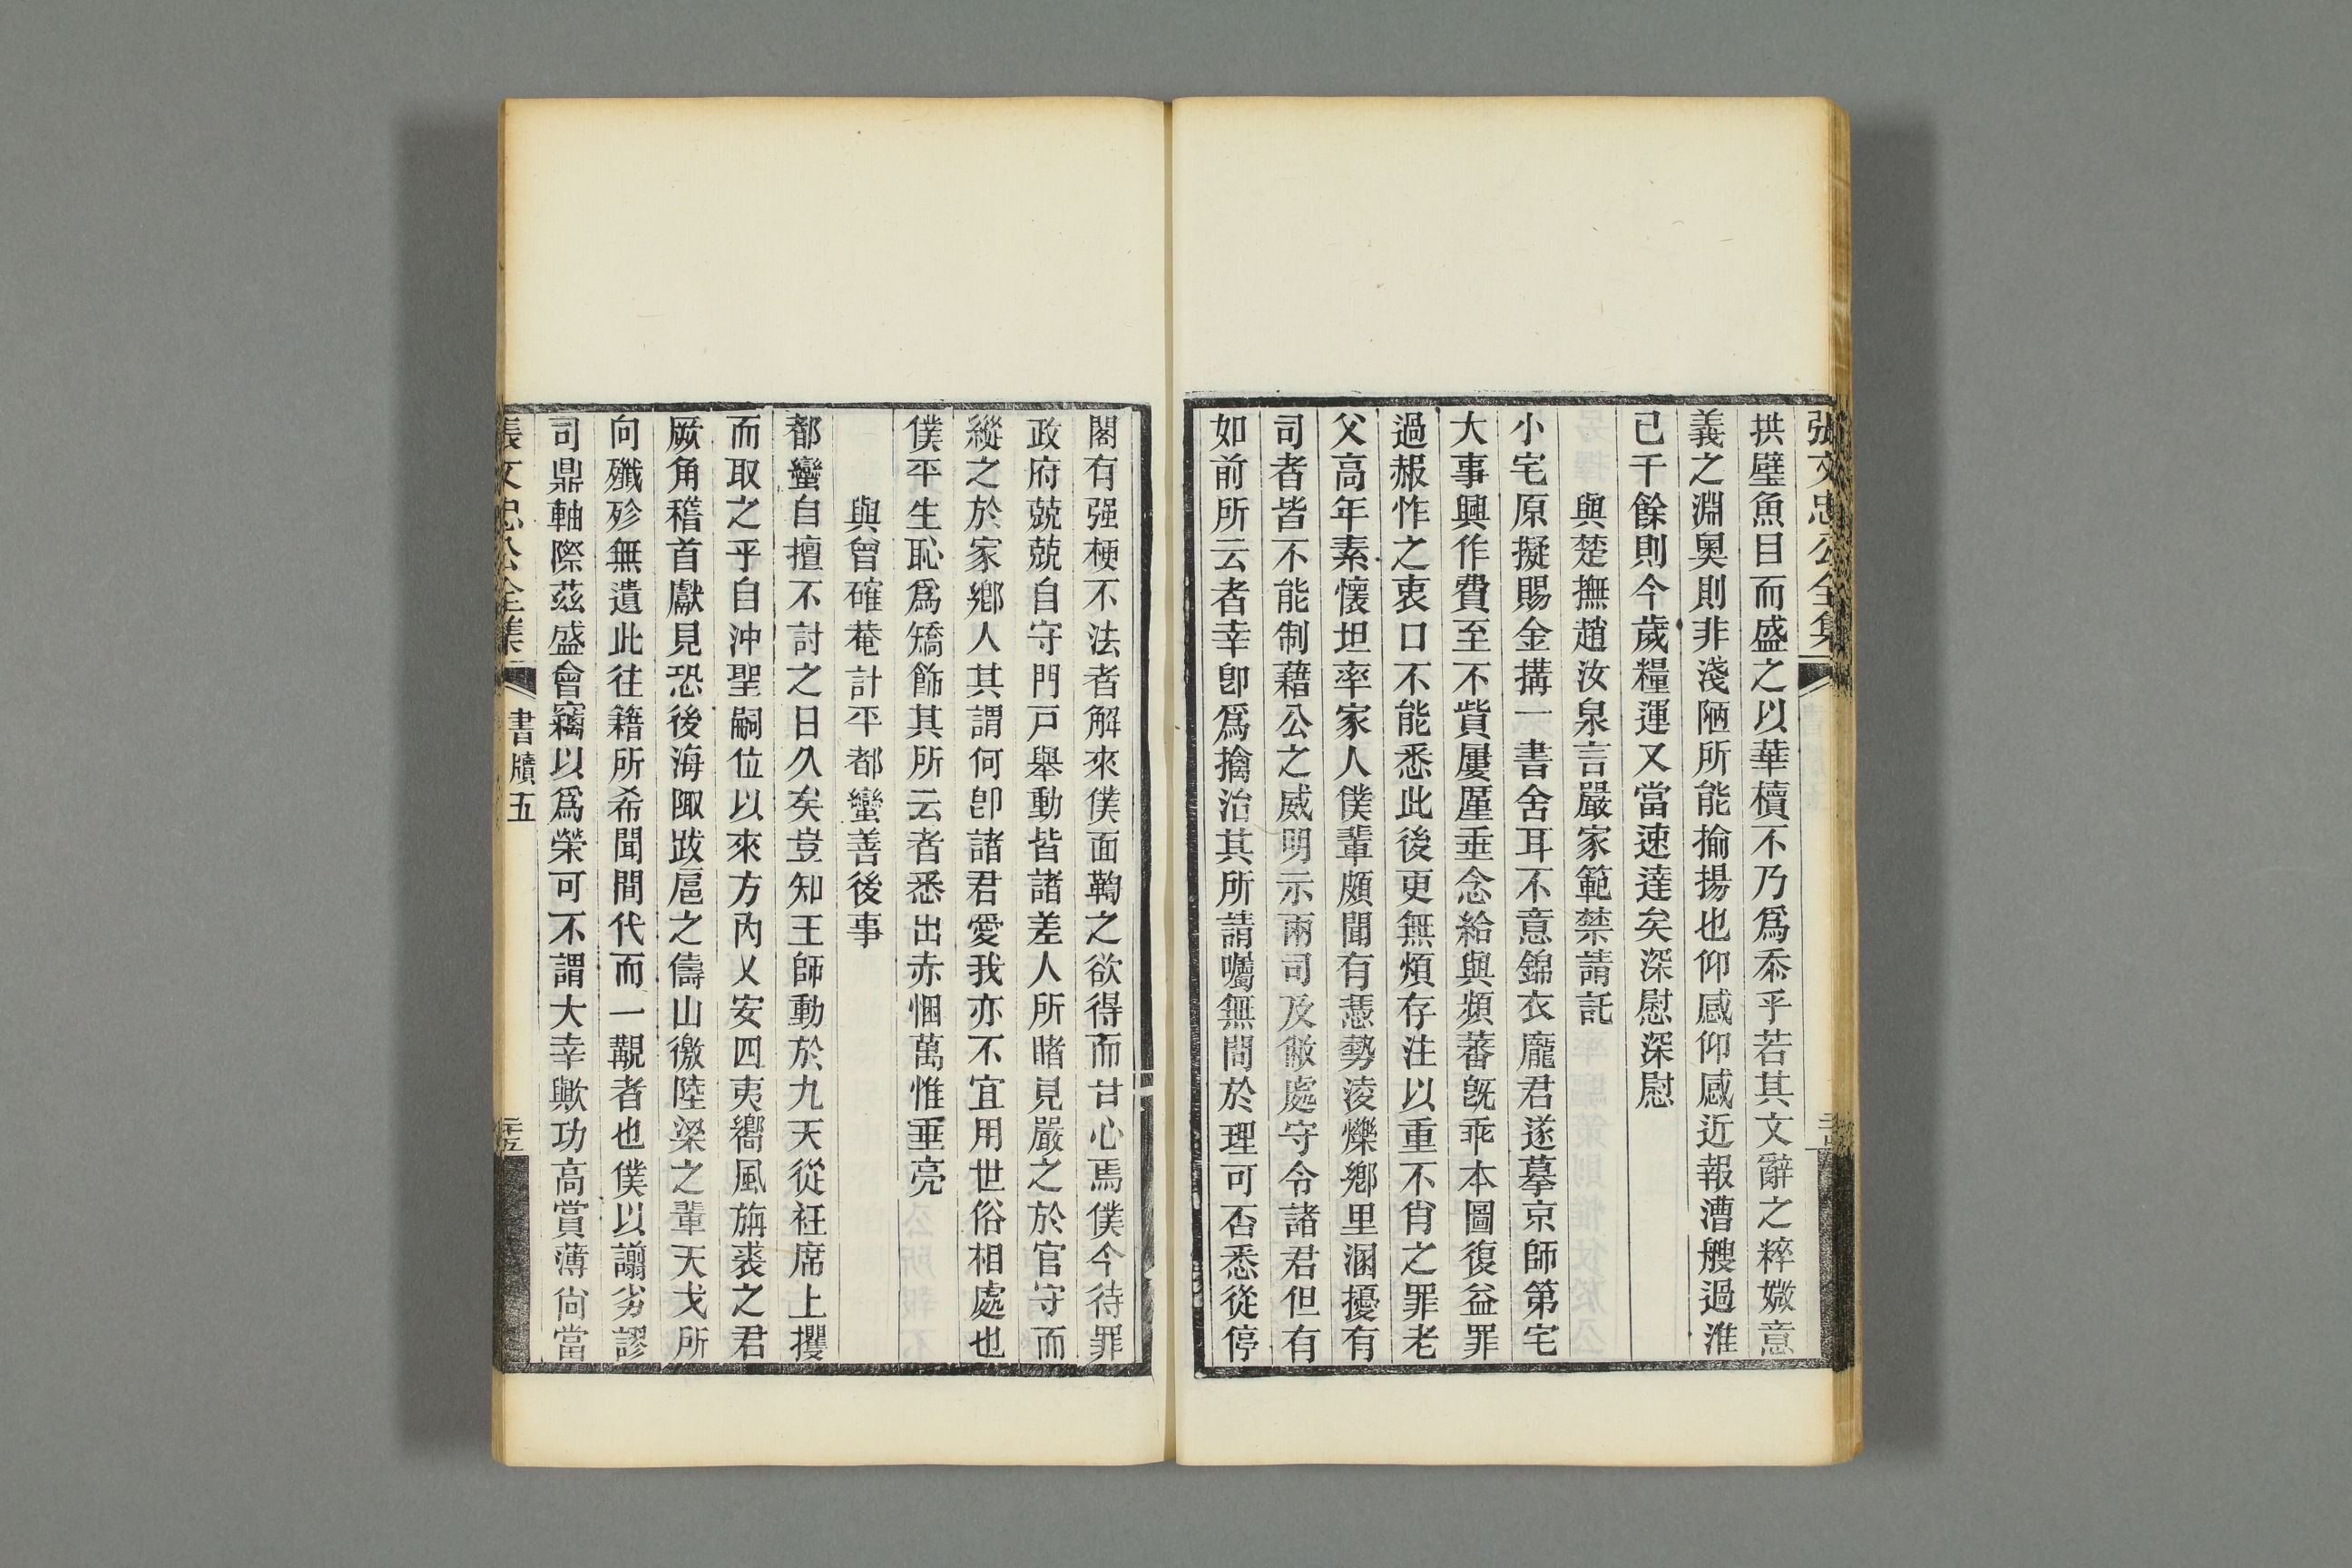 張文忠公全集
拱璧魚目而盛之以華櫝不乃爲忝乎若其文辭之粹媺意
義之淵奧則非淺陋所能揄揚也仰感仰感近報漕艘過淮
已千餘則今歲糧運又當速達矣深慰深慰
與楚撫趙汝泉言嚴家範禁請託
小宅原擬賜金搆一書舍耳不意錦衣龐君遂摹京師第宅
大事興作費至不貲屢廑垂念給與頻蕃旣乖本圖復益罪
過赧怍之衷口不能悉此後更無煩存注以重不肖之罪老
父高年素懷坦率家人僕輩頗聞有慿勢淩爍鄉里溷擾有
司者皆不能制藉公之威明示兩司及敝處守令諸君但有
如前所云者幸卽爲擒治其所請囑無問於理可否悉從停
閣有强梗不法者解來僕面鞫之欲得而甘心焉僕今待罪
政府兢兢自守門戸舉動皆諸差人所睹見嚴之於官守而
縱之於家鄉人其謂何卽諸君愛我亦不宜用世俗相處也
僕平生恥爲矯飾其所云者悉出赤悃萬惟垂亮
與曾確菴計平都蠻善後事
都蠻自擅不討之日久矣豈知王師動於九天從衽席上攫
而取之乎自沖聖嗣位以來方內乂安四夷嚮風旃裘之君
厥角稽首獻見恐後海陬跋扈之儔山徼陸梁之輩天戈所
向殲殄無遺此往籍所希聞間代而一覯者也僕以譾劣謬
司鼎軸際茲盛會竊以爲榮可不謂大幸歟功高賞薄尙當
張文忠公全集
書牘五
二十五